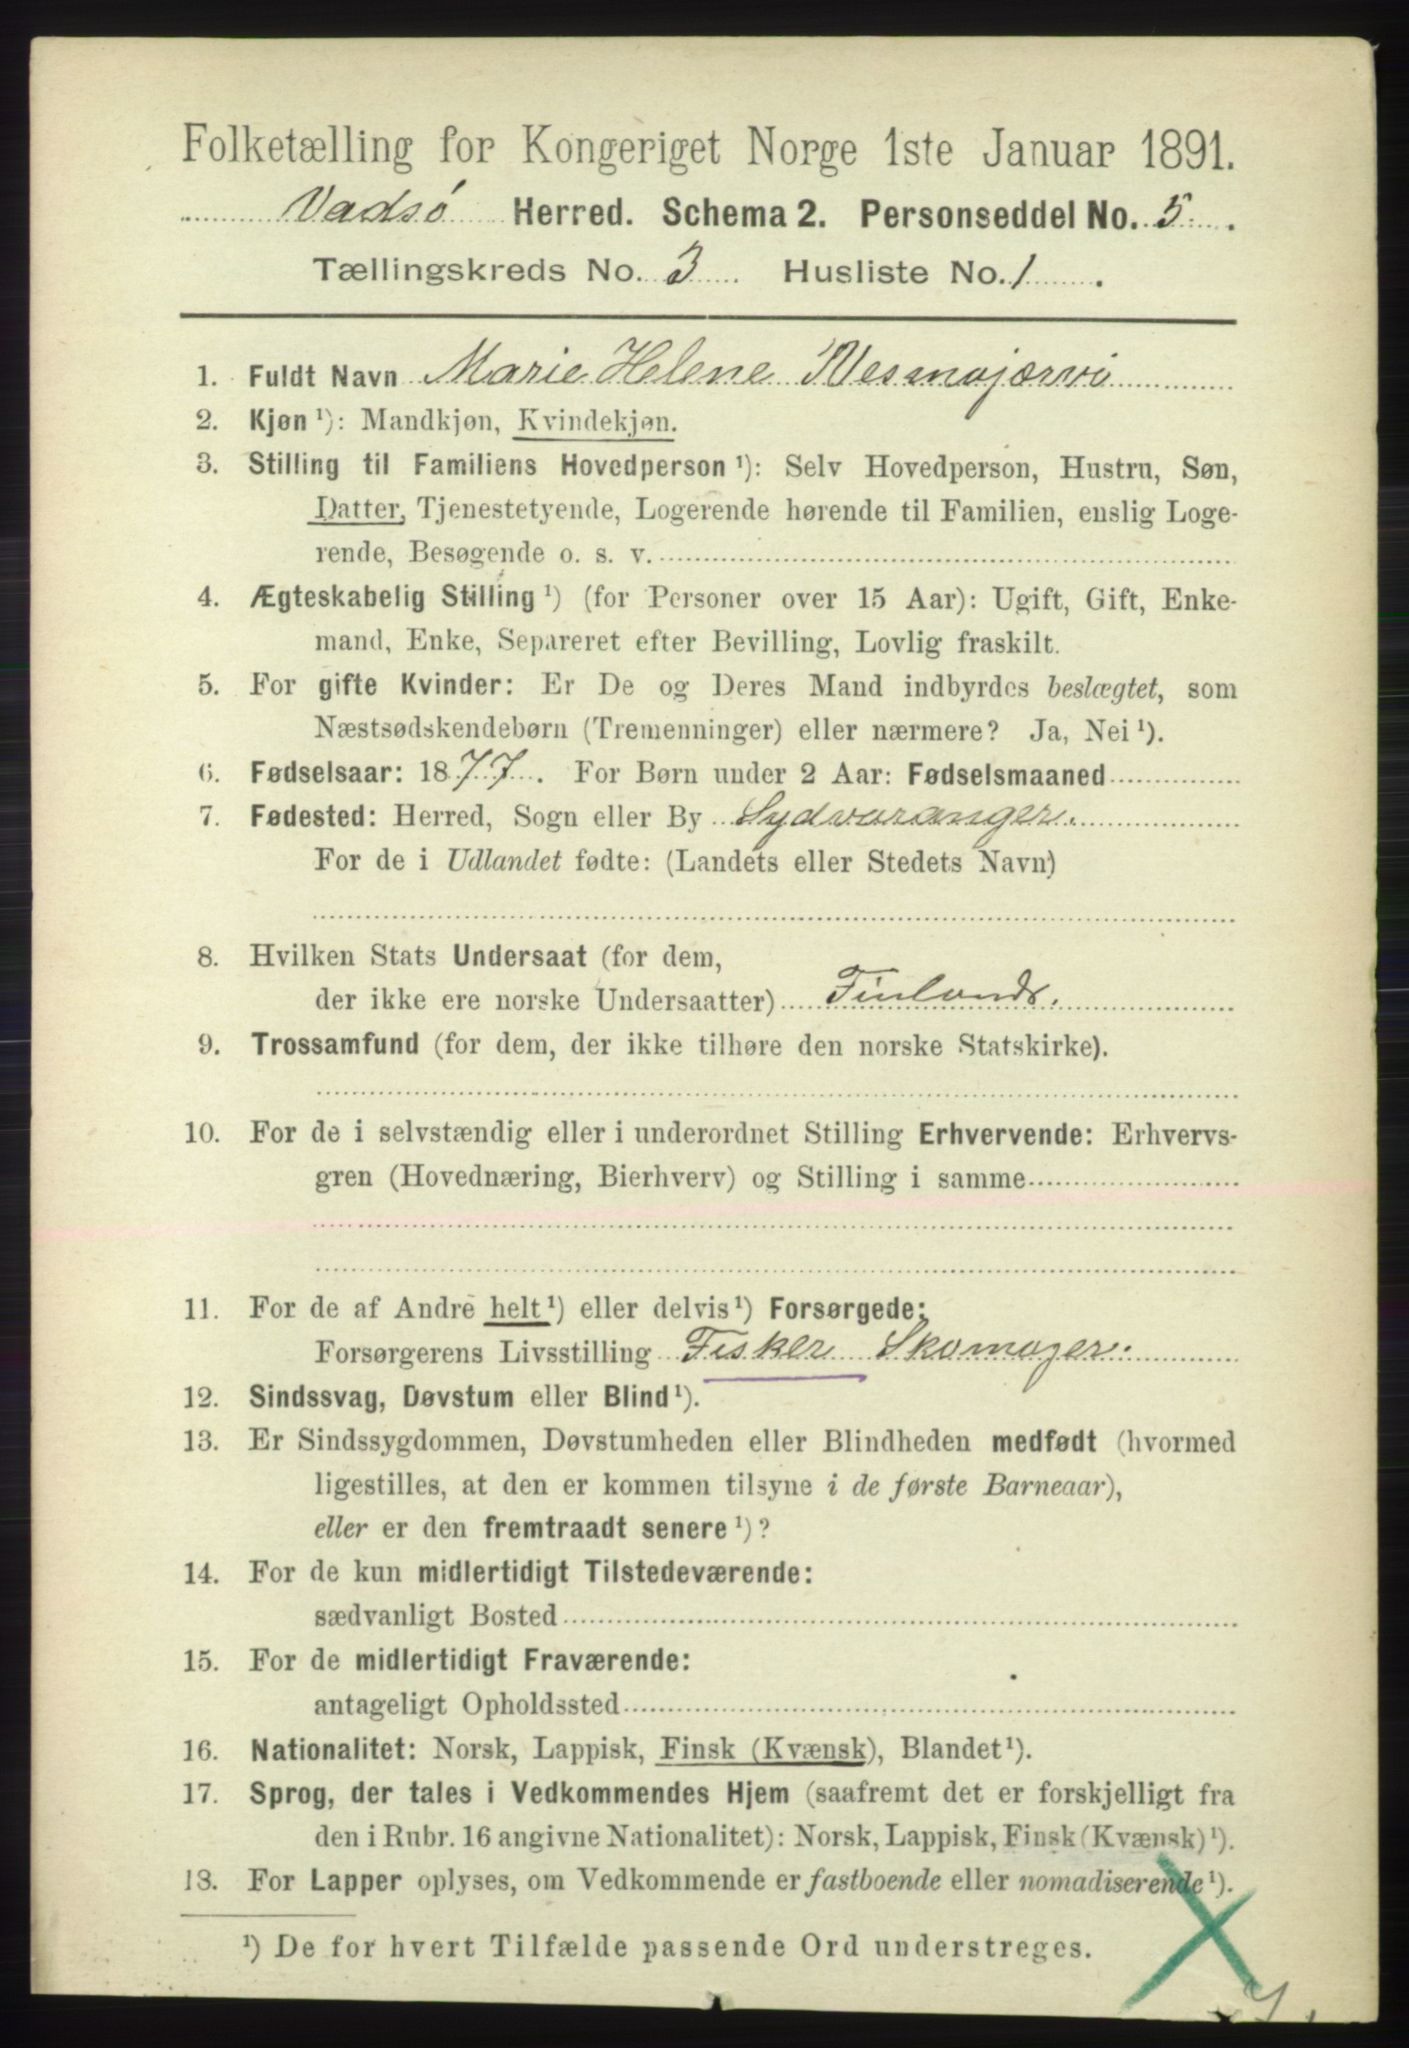 Folketælling for Kongeriget Norge 1ste Januar 1891.
Vadsø Herred. Schema 2. Personseddel No. 5.
Tællingskreds No. 3 Husliste No. 1.
1. Fuldt Navn Marie Helene Wesmajærvi
2. Kjøn ¹): Mandkjøn, Kvindekjøn.
3. Stilling til Familiens Hovedperson ¹): Selv Hovedperson, Hustru, Søn,
Datter, Tjenestetyende, Logerende hørende til Familien, enslig Loge-
rende, Besøgende o. s. v.
4. Ægteskabelig Stilling ¹) (for Personer over 15 Aar): Ugift, Gift, Enke-
mand, Enke, Separeret efter Bevilling, Lovlig fraskilt.
5. For gifte Kvinder: Er De og Deres Mand indbyrdes beslægtet, som
Næstsødskendebørn (Tremenninger) eller nærmere? Ja, Nei ¹).
6. Fødselsaar: 1877. For Børn under 2 Aar: Fødselsmaaned
7. Fødested: Herred, Sogn eller By Sydvaranger.
For de i Udlandet fødte: (Landets eller Stedets Navn)
8. Hvilken Stats Undersaat (for dem,
der ikke ere norske Undersaatter) Finlands.
9. Trossamfund (for dem, der ikke tilhøre den norske Statskirke).
10. For de i selvstændig eller i underordnet Stilling Erhvervende: Erhvervs-
gren (Hovednæring, Bierhverv) og Stilling i samme
11. For de af Andre helt ¹) eller delvis ¹) Forsørgede:
Forsørgerens Livsstilling Fisker Skomager.
12. Sindssvag, Døvstum eller Blind ¹).
13. Er Sindssygdommen, Døvstumheden eller Blindheden medfødt (hvormed
ligestilles, at den er kommen tilsyne i de første Barneaar),
eller er den fremtraadt senere ¹)?
14. For de kun midlertidigt Tilstedeværende:
sædvanligt Bosted
15. For de midlertidigt Fraværende:
antageligt Opholdssted
16. Nationalitet: Norsk, Lappisk, Finsk (Kvænsk), Blandet ¹).
17. Sprog, der tales i Vedkommendes Hjem (saafremt det er forskjelligt fra
den i Rubr. 16 angivne Nationalitet): Norsk, Lappisk, Finsk (Kvænsk) ¹).
18. For Lapper oplyses, om Vedkommende er fastboende eller nomadiserende ¹).
¹) De for hvert Tilfælde passende Ord understreges.